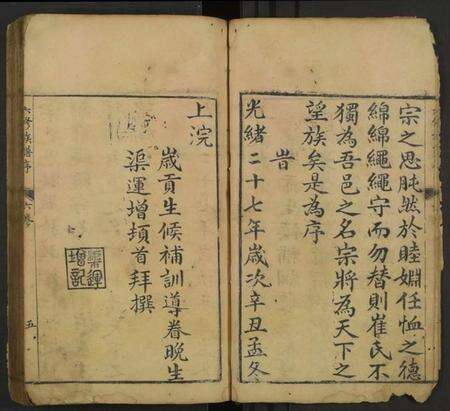 宗之思肫然於睦婣任恤之德
綿綿繩繩守而勿替則崔氏不
獨為吾邑之名宗將為天下之
望族矣是為序
旹
光緒二十七年歲次辛丑孟冬
上浣
歲貢生候補訓導眷晚生
渠運增頓首拜撰
五